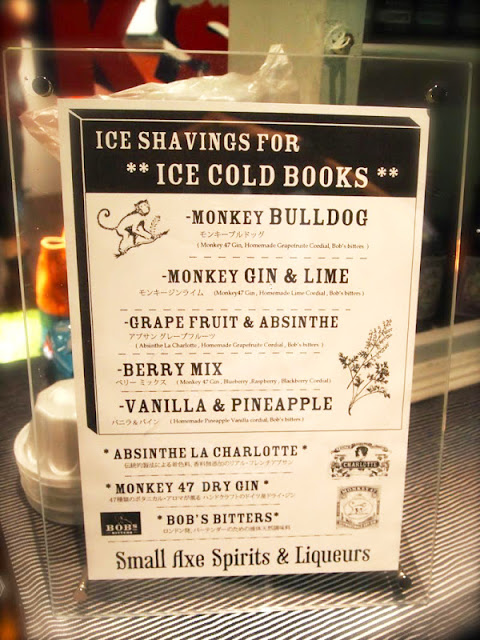 ICE SHAVINGS FOR
** ICE COLD BOOKS **
-MONKEY BULLDOG
モンキーブルドッグ
( Monkey 47 Gin, Homemade Grapefruite Cordial, Bob's bitters )
-MONKEY GIN & LIME
モンキージンライム (Monkey47 Gin , Homemade Lime Cordial , Bob's bitters )
-GRAPE FRUIT & ABSINTHE
アブサン グレープフルーツ
( Absinthe La Charlotte , Homemade Grapefruite Cordial, Bob's bitters )
-BERRY MIX
ベリー ミックス ( Monkey 47 Gin , Blueberry ,Raspberry , Blackberry Cordial)
-VANILLA & PINEAPPLE
バニラ&パイン (Homemade Pineapple Vanilla cordial, Bob's bitters)
* ABSINTHE LA CHARLOTTE *
伝統的製法による着色料、香料無添加のリアル・フレンチアブサン
CHARLOTTE
* MONKEY 47 DRY GIN *
47種類のボタニカル・アロマが薫る ハンドクラフトのドイツ産ドライ・ジン
MONKEY 47
BOB'S
BITTERS
*BOB'S BITTERS*
ロンドン発、バーテンダーのための液体天然調味料
Small Axe Spirits & Liqueurs